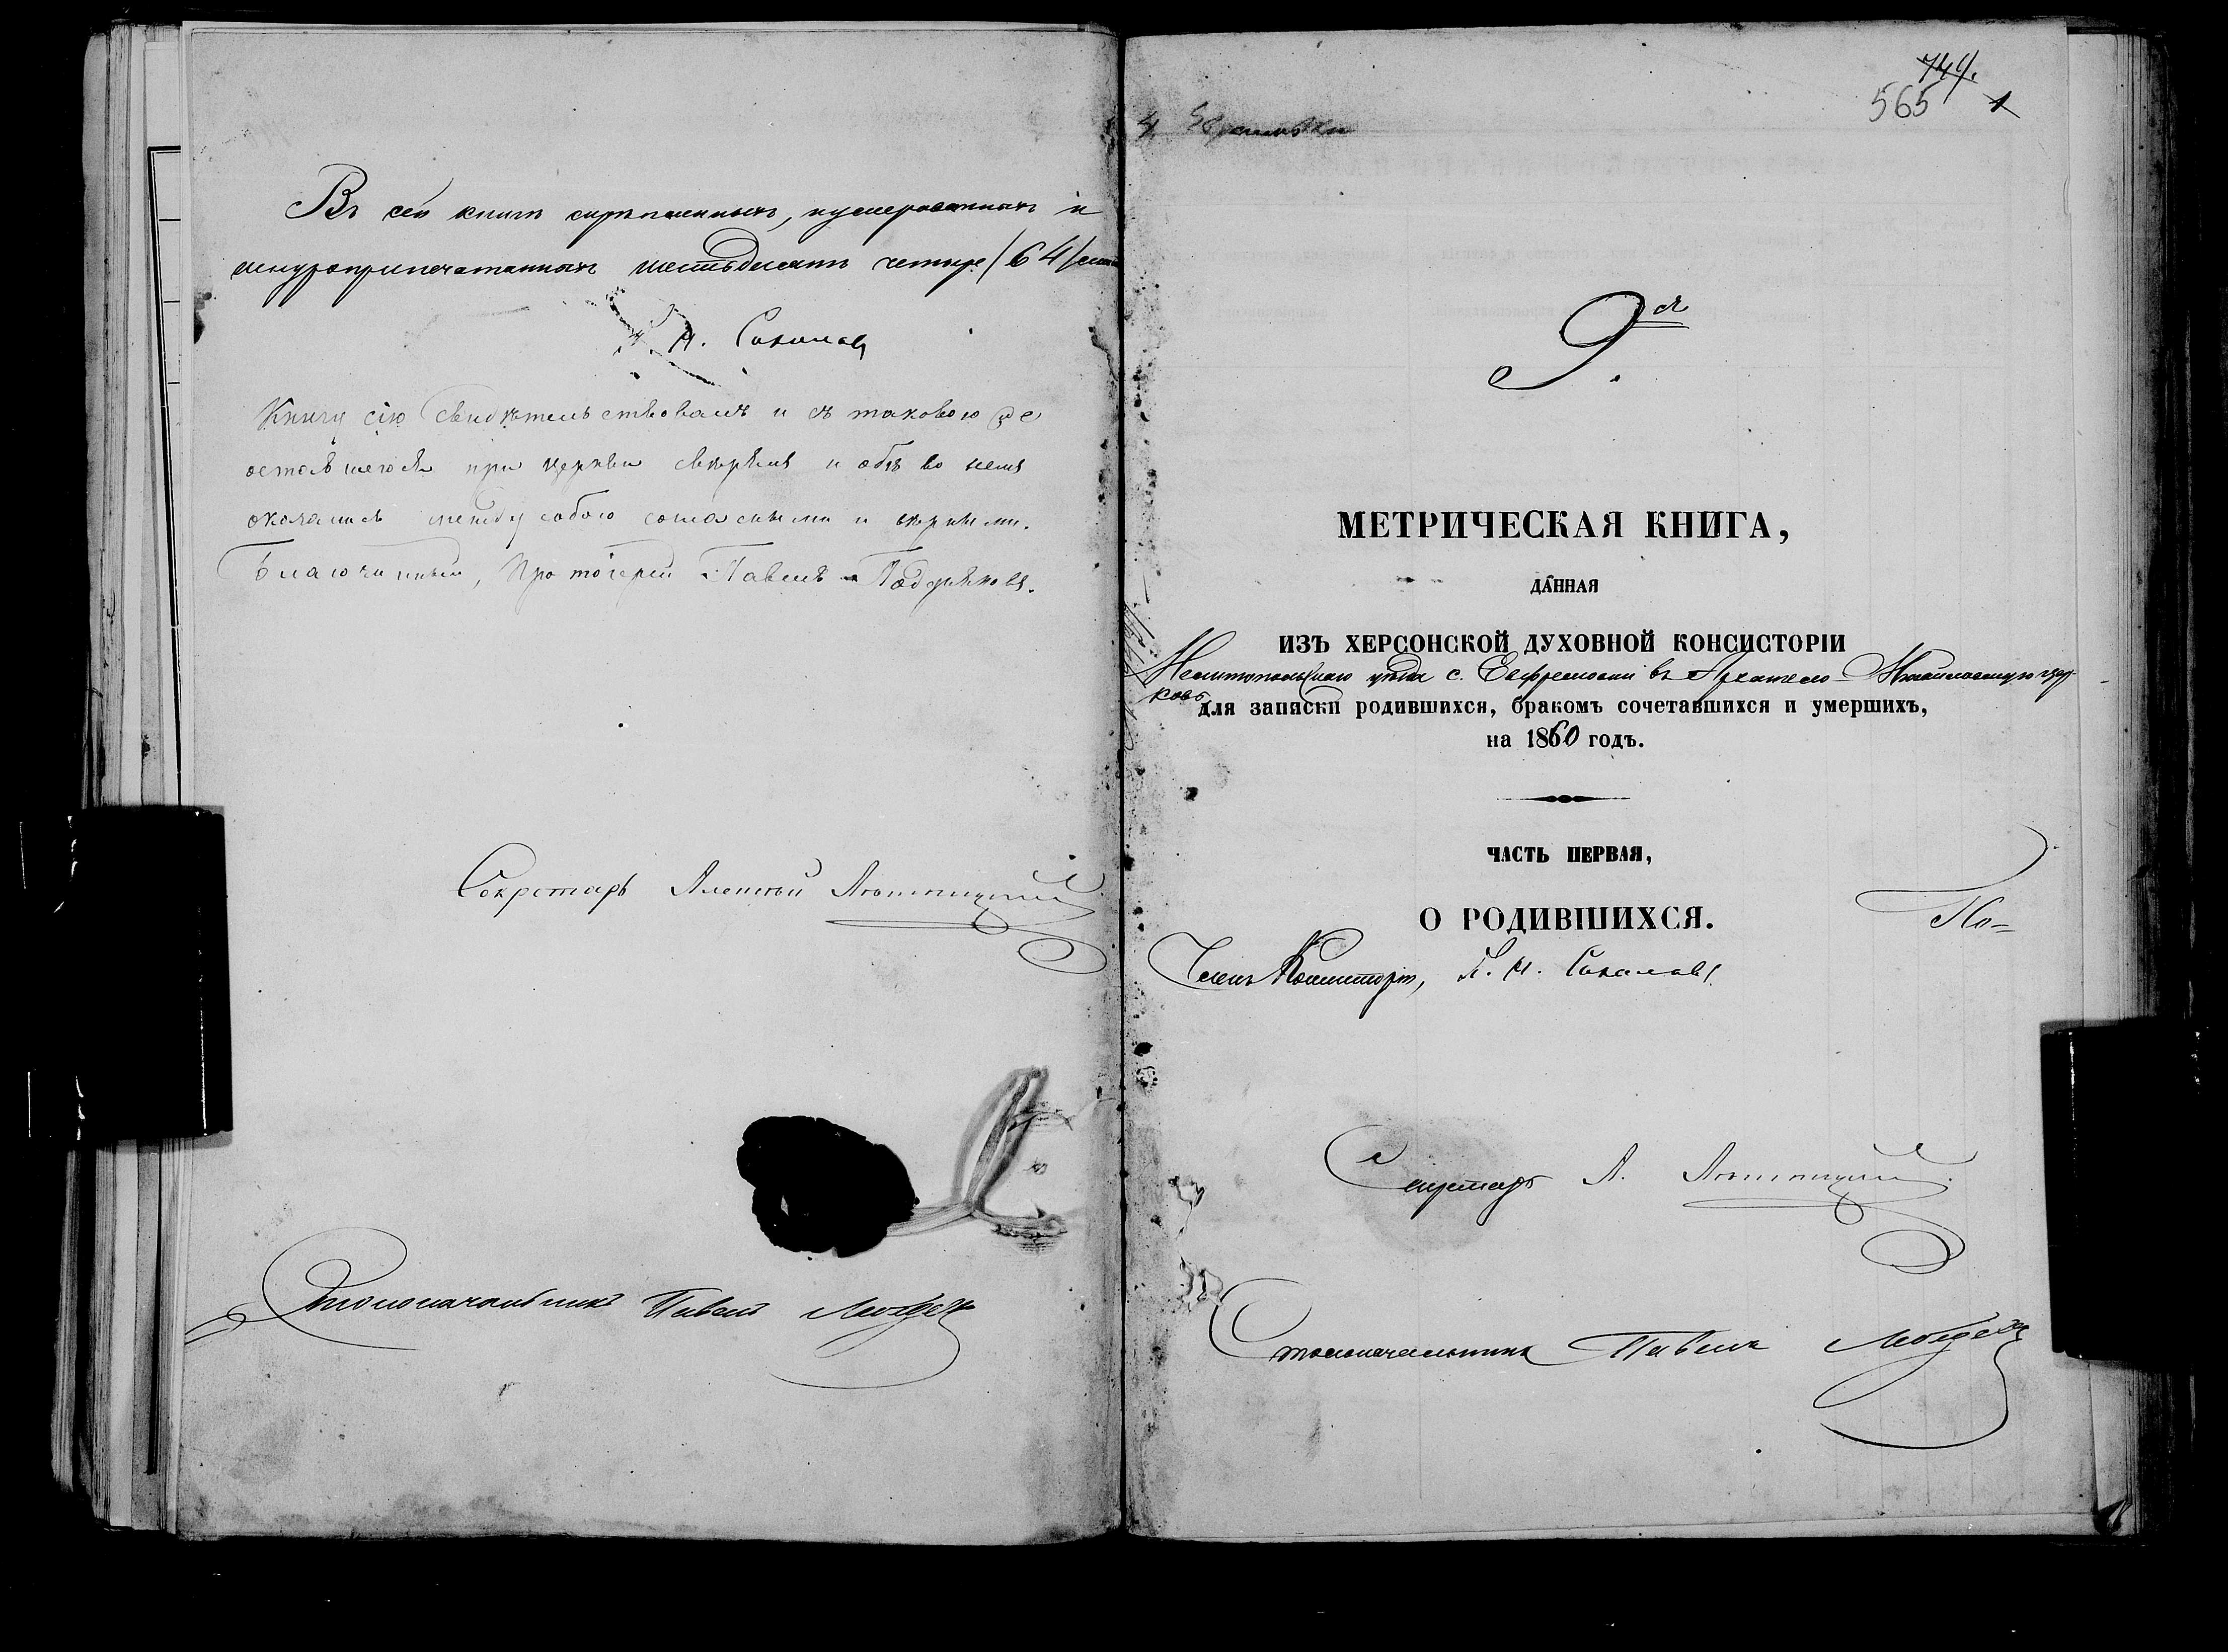 Въ сей книгѣ скрѣпленныхъ, нумерованныхъ и
шнуроприпечатанныхъ шестьдесятъ четыре /64/
Н. Соколовъ
Книгу сію свидѣтельствовалъ и съ таковою же
оставшеюся при церкви свѣрялъ и обѣ во всемъ
оказались между собою согласными и вѣрными.
Благочинный, Протоіерей Павелъ
Секретарь Алексѣй
Столоначальникъ Павелъ
744.
565 1
9я
МЕТРИЧЕСКАЯ КНИГА,
ДАННАЯ
ИЗЪ ХЕРСОНСКОЙ ДУХОВНОЙ КОНСИСТОРІИ
Мелитопольскаго уѣзда с. Ефремовки въ Архангело-Михайловскую цер-
ковь
для записки родившихся, бракомъ сочетавшихся и умершихъ,
на 1860 годъ.
ЧАСТЬ ПЕРВАЯ,
О РОДИВШИХСЯ.
По-
Членъ Консисторіи, Н. Соколовъ
Секретарь А.
Столоначальникъ Павелъ